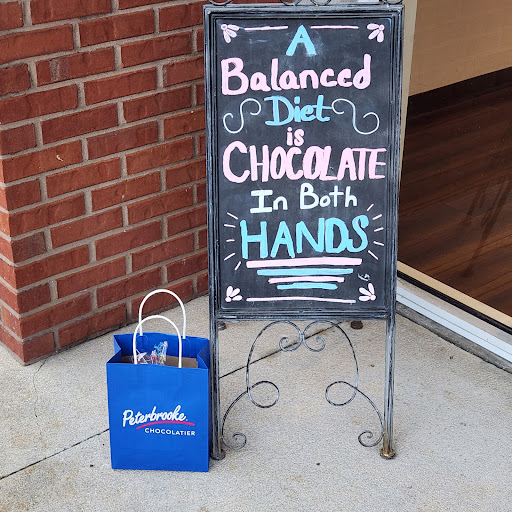 A
Balanced
Diet
is
CHOCOLATE
In Both
HANDS
Peterbrooke
CHOCOLATIER